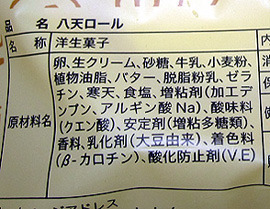 品 名 八天ロール
名 称 洋生菓子
原材料名
卵、生クリーム、砂糖、牛乳、小麦粉、
植物油脂、バター、脱脂粉乳、ゼラ
チン、寒天、食塩、増粘剤(加工デ
ンプン、アルギン酸Na)、酸味料
(クエン酸)、安定剤(増粘多糖類)、
香料、乳化剤(大豆由来)、着色料
(β-カロチン)、酸化防止剤(V.E)
内
消
保